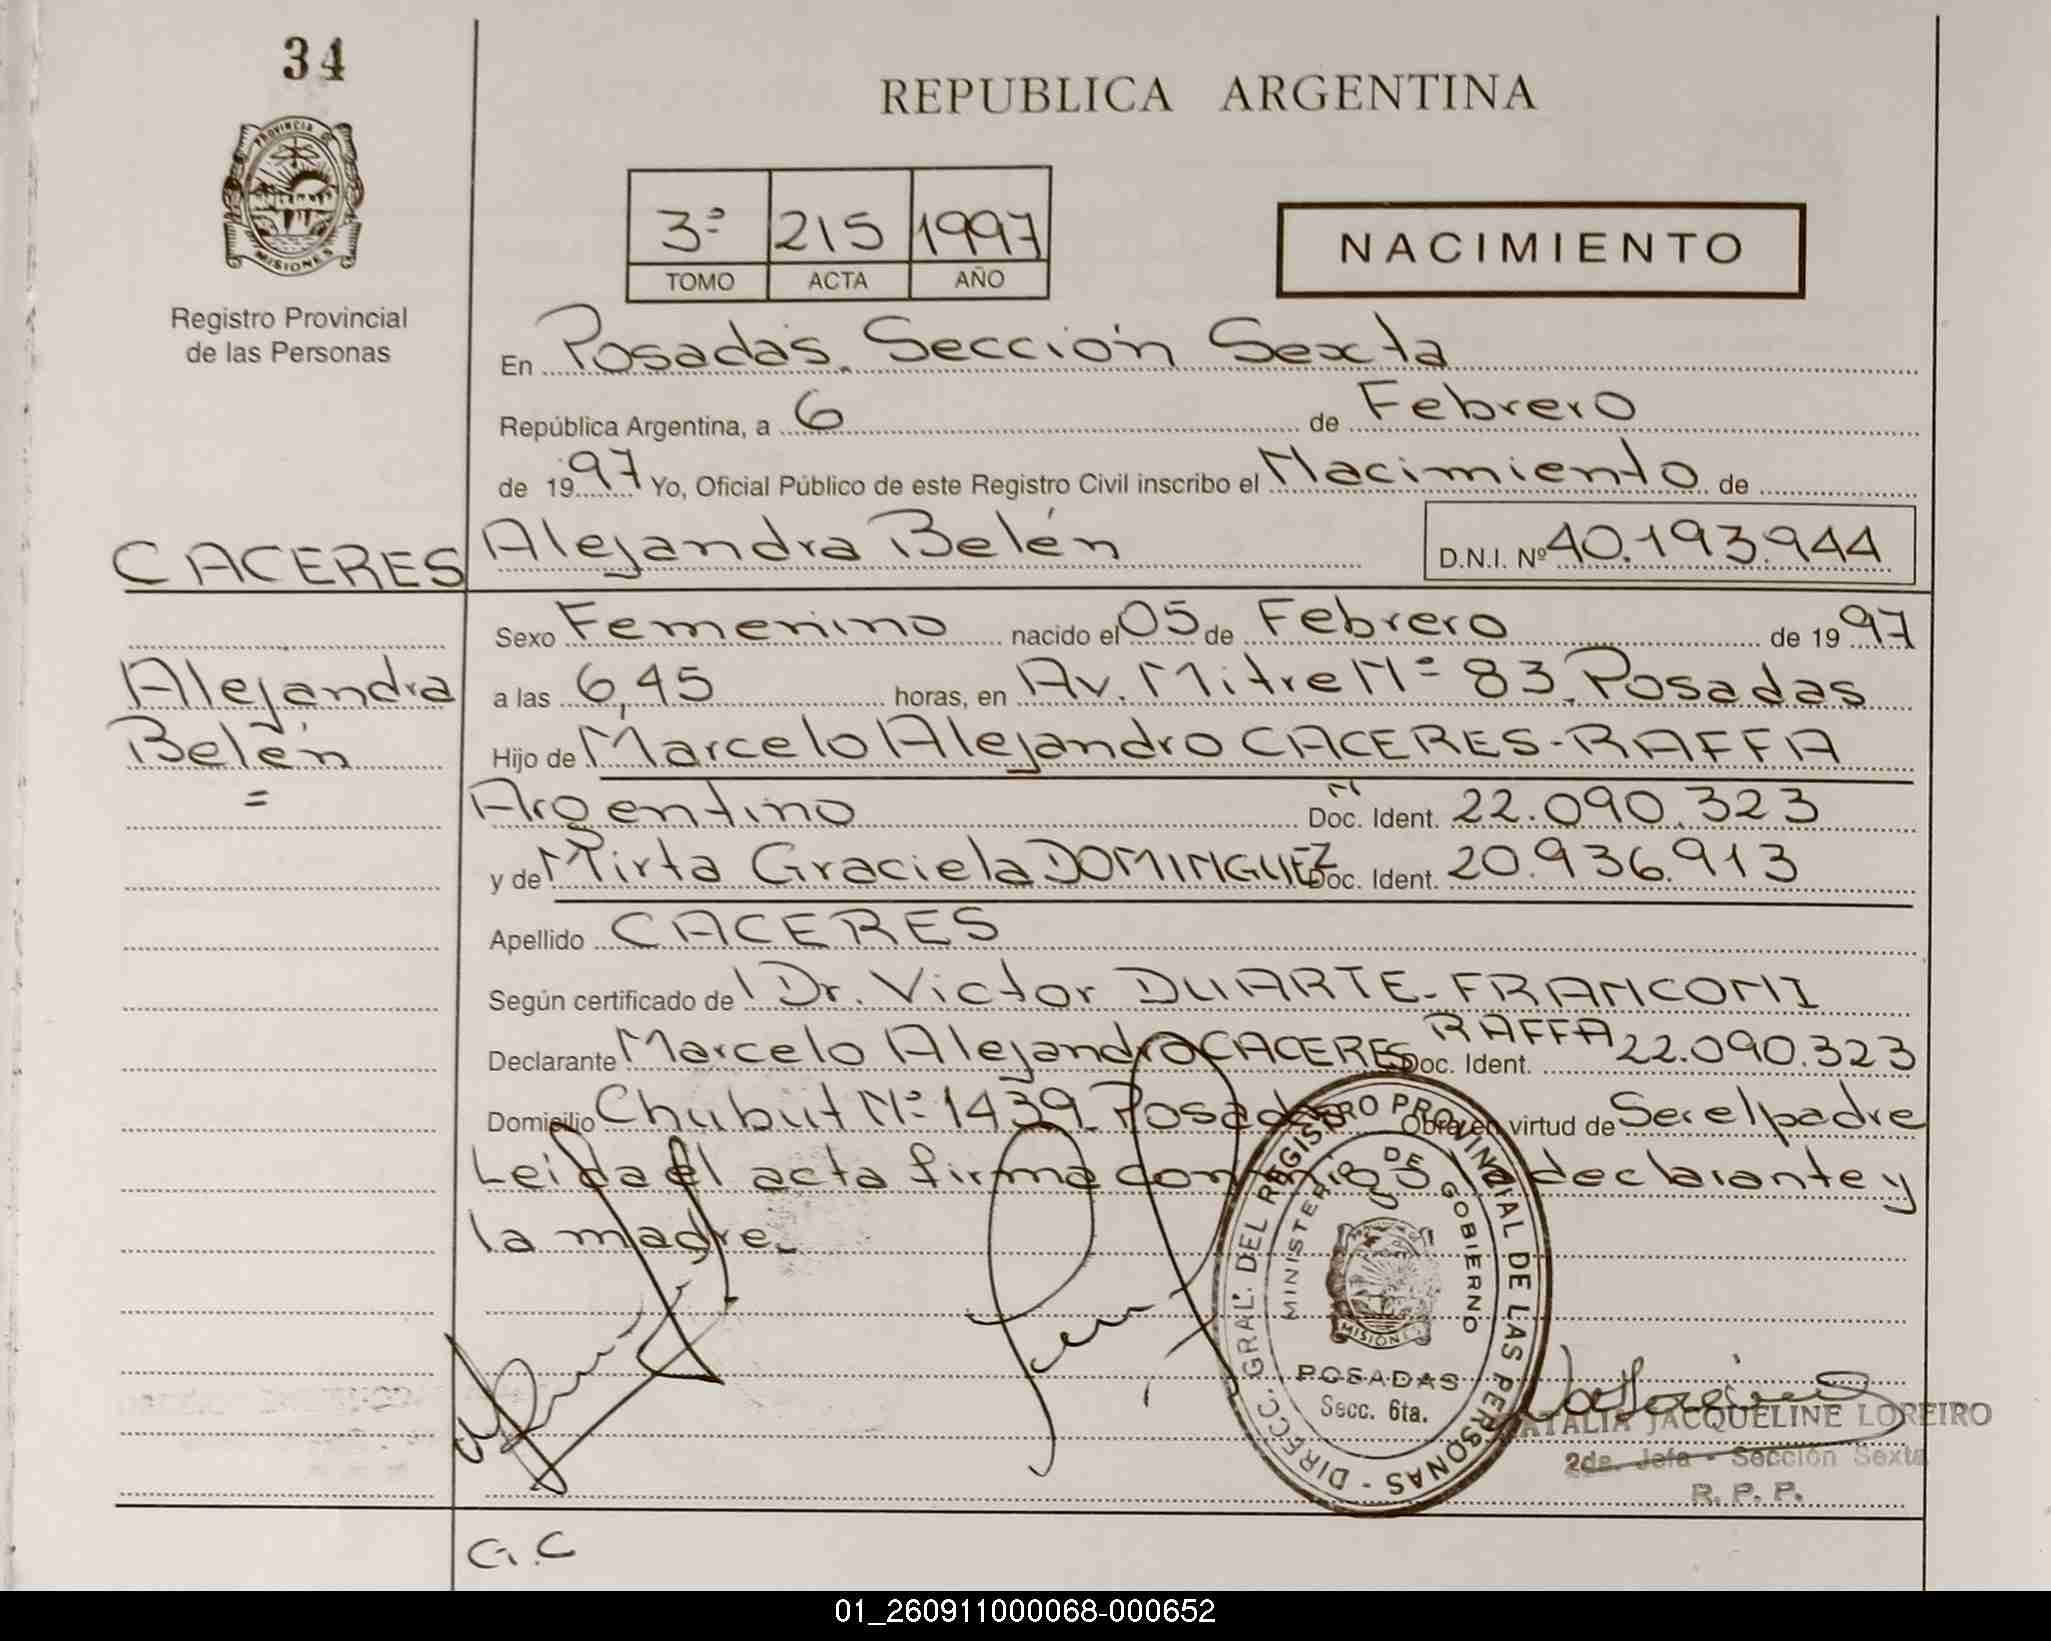 34
PROVINCIA DE
MISIONES
Registro Provincial
de las Personas
REPUBLICA ARGENTINA
3º 215 1997
TOMO ACTA AÑO
NACIMIENTO
En Posadas. Sección Sexta
República Argentina, a 6 de Febrero
de 1997 Yo, Oficial Público de este Registro Civil inscribo el Nacimiento de
CACERES Alejandra Belén D.N.I. Nº 40.193.944
Sexo Femenino nacido el 05 de Febrero de 1997
Alejandra
a las 6,45 horas, en Av. Mitre Nº 83. Posadas
Belén
Hijo de Marcelo Alejandro CACERES-RAFFA
=
Argentino Doc. Ident. 22.090.323
y de Mirta Graciela DOMINGUEZ Doc. Ident. 20.936.913
Apellido CACERES
Según certificado de Dr. Victor DUARTE-FRANCONI
Declarante Marcelo Alejandro CACERES RAFFA Doc. Ident. 22.090.323
Domicilio Chubut Nº 1439 Posadas Obra en virtud de Ser el padre
Leida el acta firma conmigo declarante y
la madre.
DIRECC. GRAL. DEL REGISTRO PROVINCIAL DE LAS PERSONAS -
MINISTERIO DE GOBIERNO
MISIONES
POSADAS
Secc. 6ta.
NATALIA JACQUELINE LOREIRO
2da. Jefa - Sección Sexta
R. P. P.
G.C
01_260911000068-000652